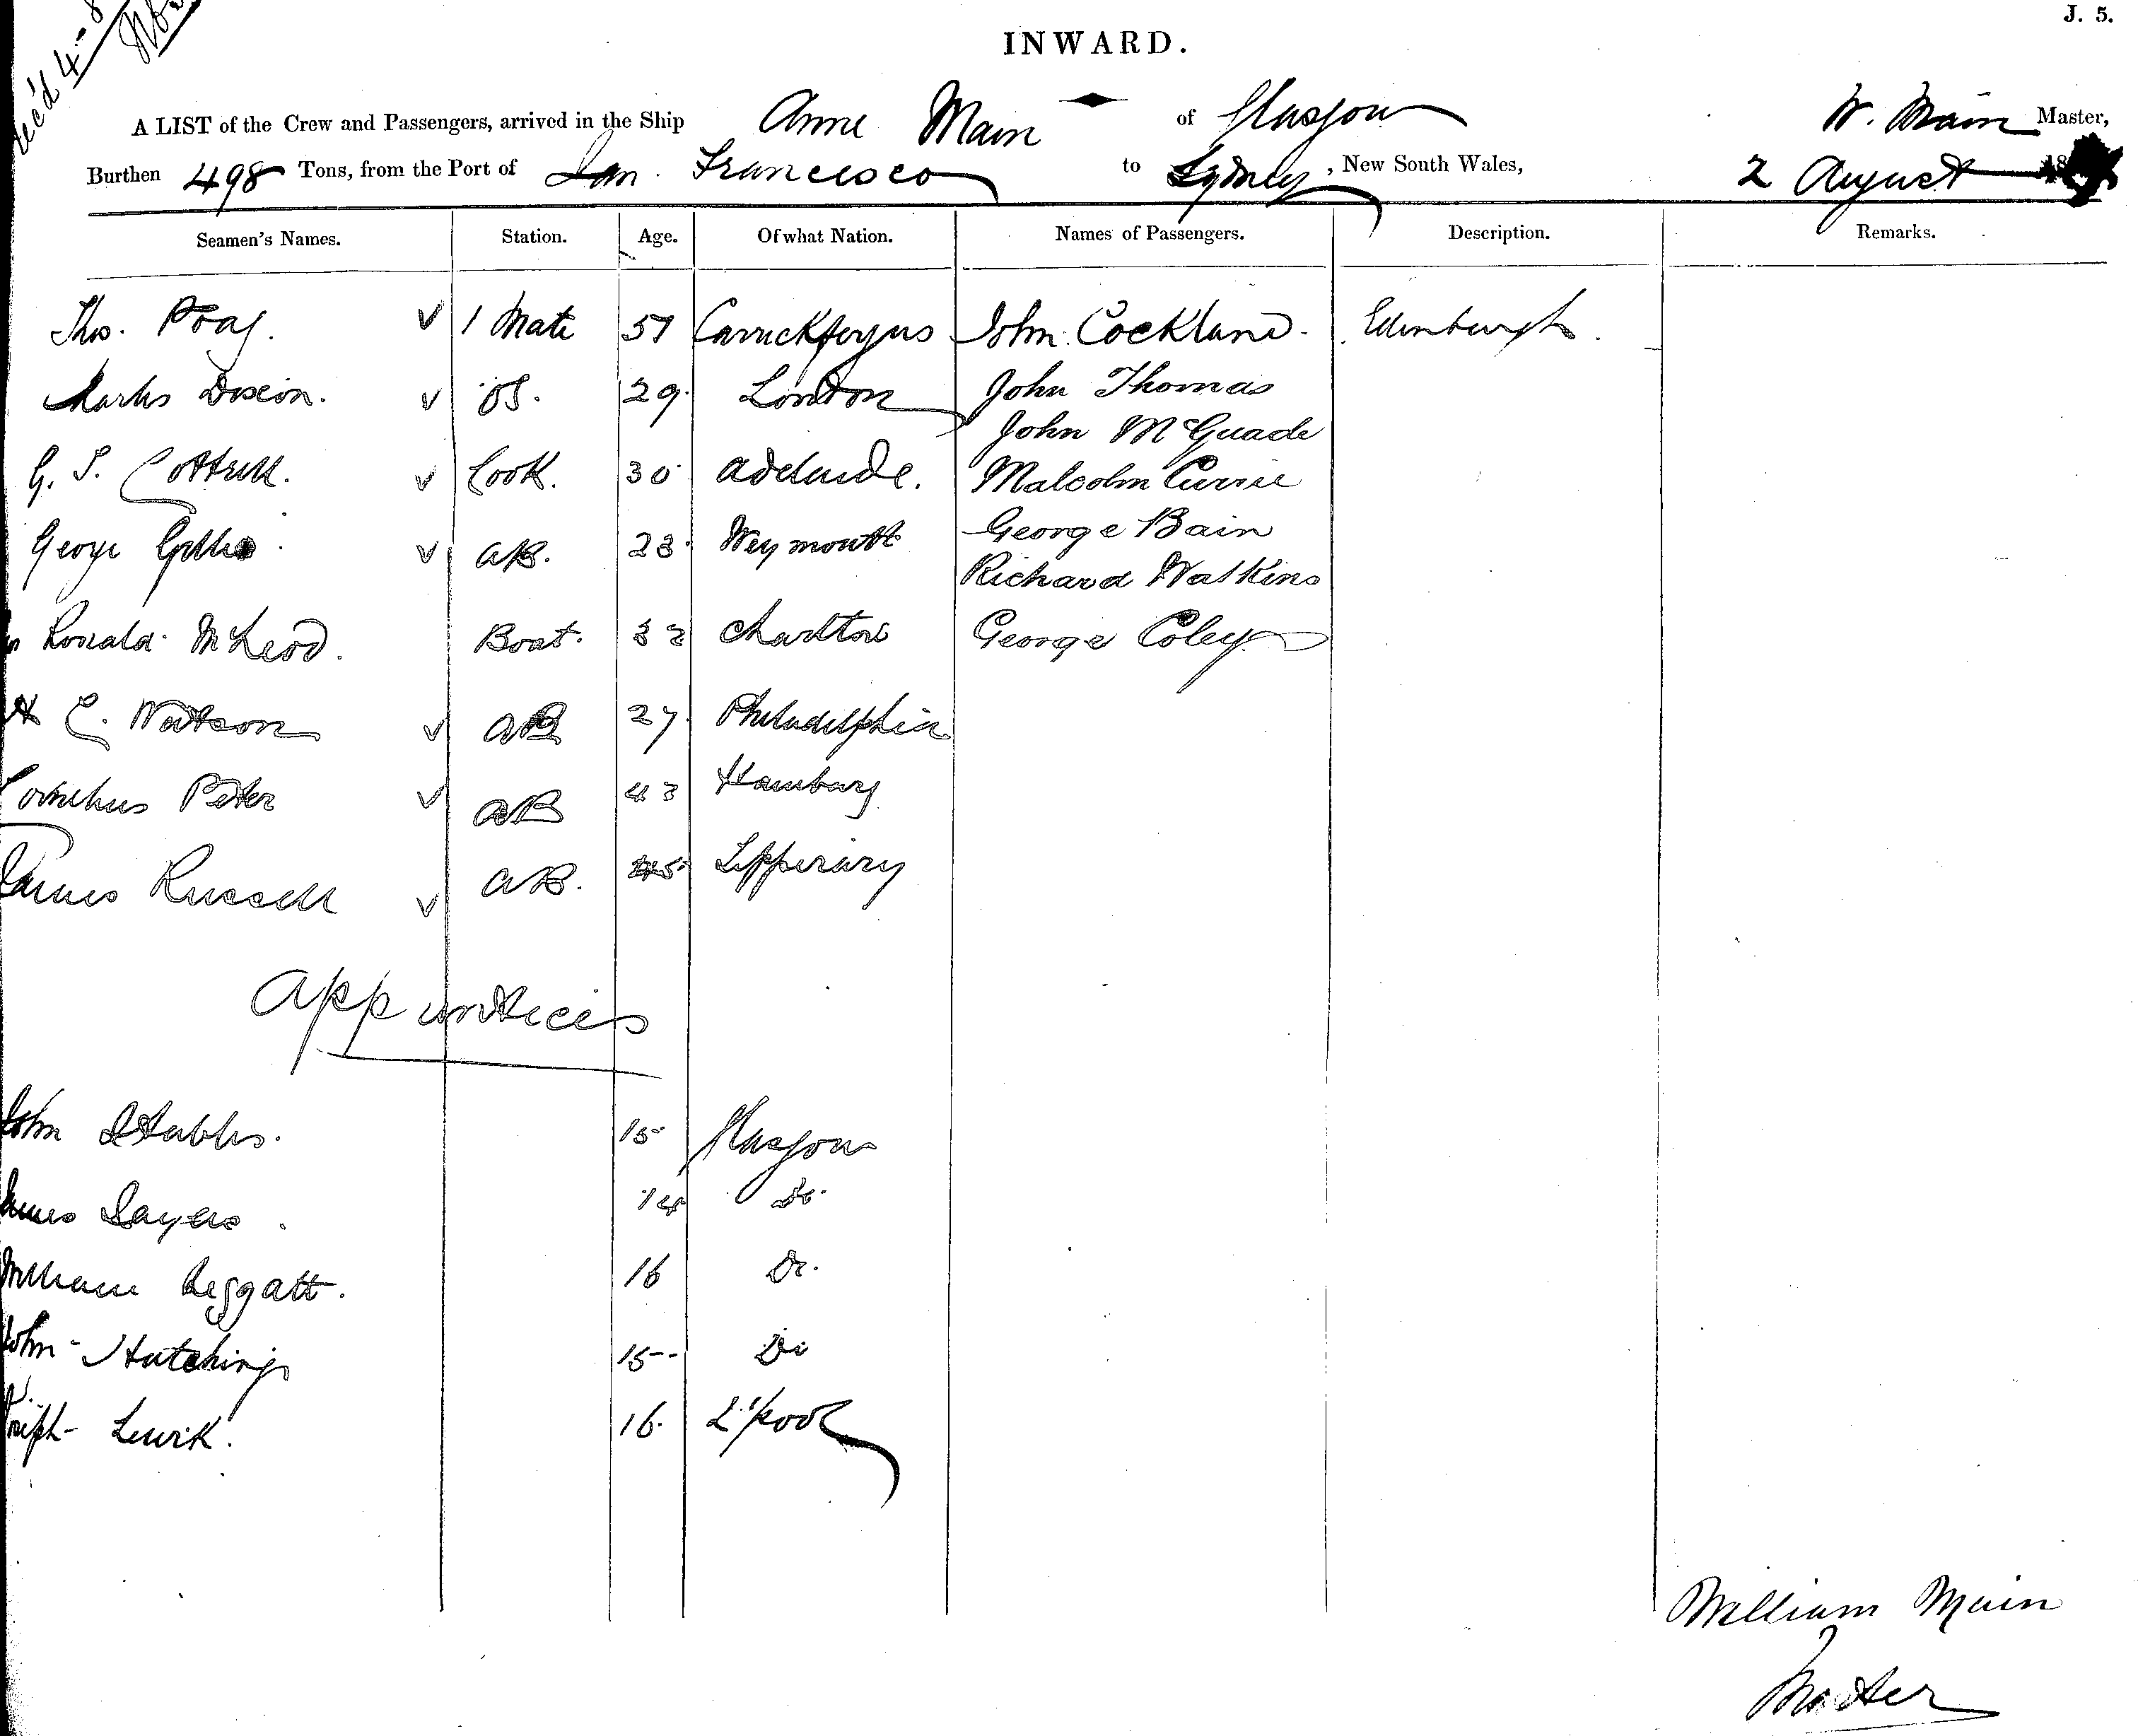 J. 5.
INWARD.
A LIST of the Crew and Passengers, arrived in the Ship Anne Main of Glasgow W. Main Master,
Burthen 498 Tons, from the Port of San Francisco to Sydney, New South Wales, 2 August 18
Seamen's Names. Station. Age. Of what Nation. Names of Passengers. Description. Remarks.
Thos. v 1 Mate 57 Carrickfergus John Cockland. Edinburgh.
Charles Dixon. v OS. 29. London John Thomas
John McGuade
G. S. Cottrell. v Cook. 30 Adelaide. Malcolm Currie
George v AB. 23. Weymouth George Bain
Richard Watkins
Ronald McLeod. Boat. 32 Charlton George Coley
C. Watson v AB 27 Philadelphia
Cornelius Peter v AB 43 Hamburg
James Russell v AB. 45 Tipperary
Apprentices
John Stubbs. 15 Glasgow
James Sayers. 14 Do.
William Leggatt. 16 Do.
John Hutchings 15 Do
Joseph Lewik. 16. L'pool
William Main
Master